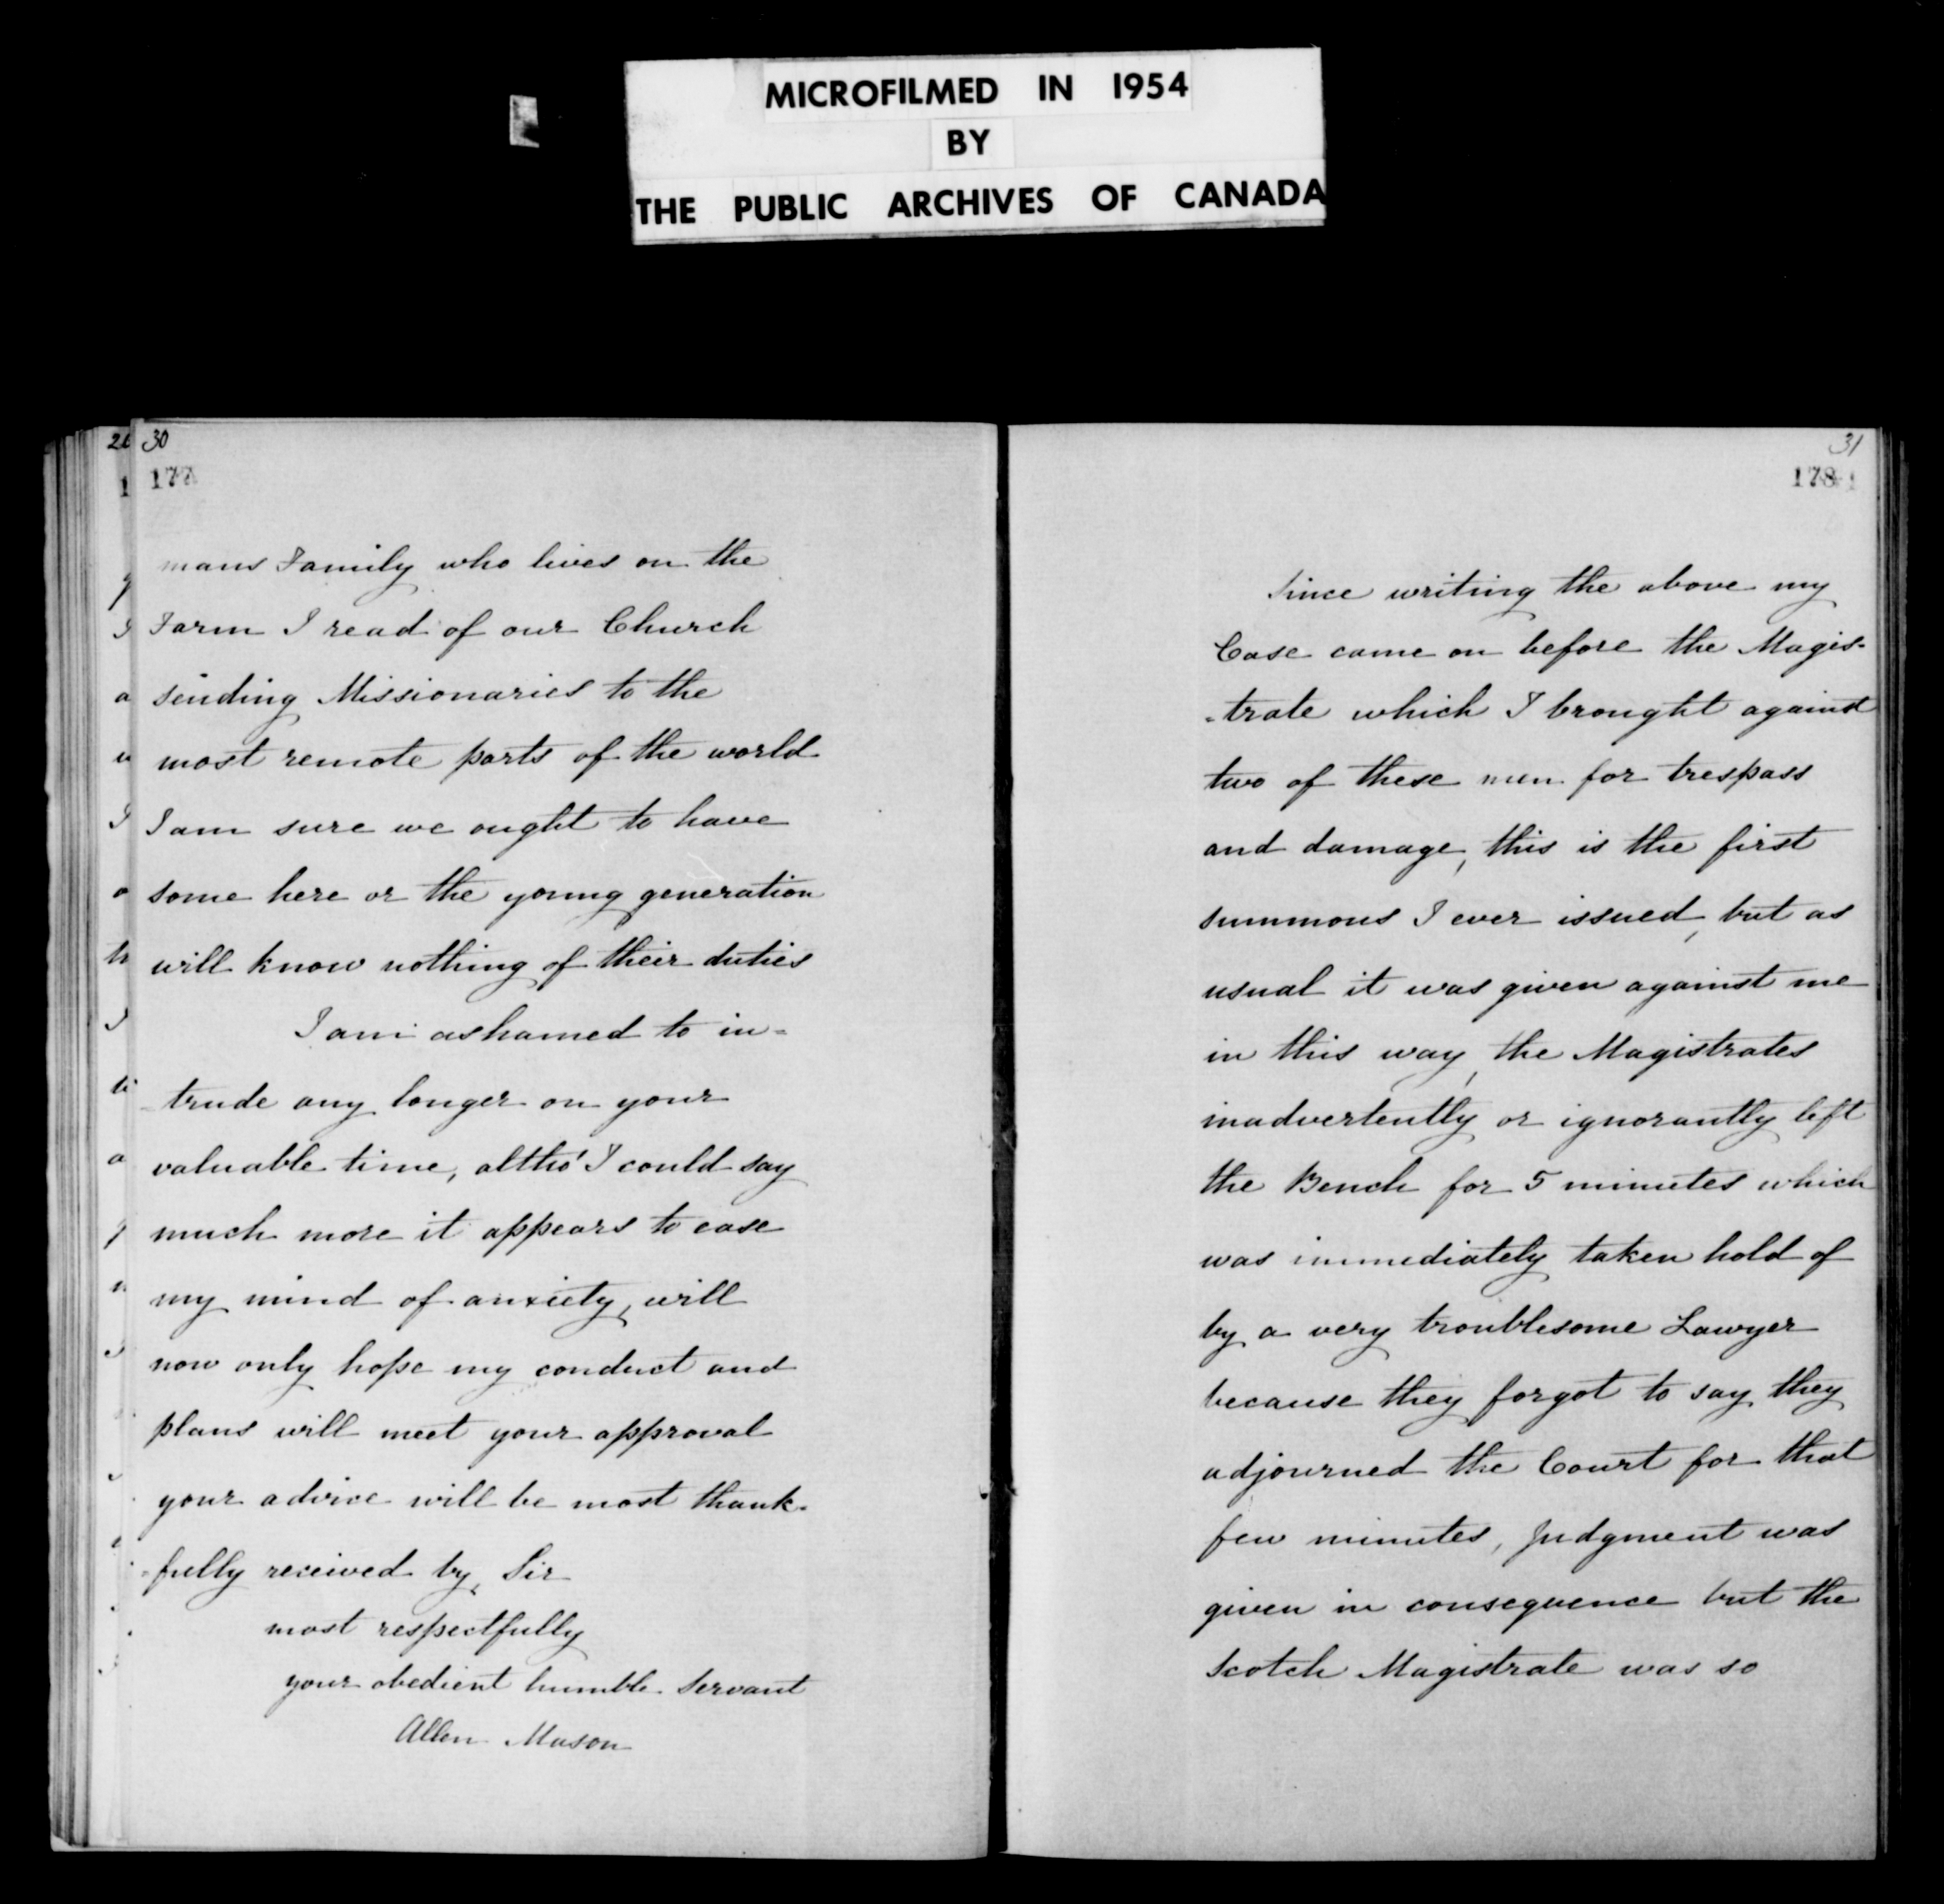 MICROFILMED IN 1954
BY
THE PUBLIC ARCHIVES OF CANADA
30
177
mans Family who lives on the
Farm I read of our Church
sending Missionaries to the
most remote parts of the world
I am sure we ought to have
some here or the young generation
will know nothing of their duties
I am ashamed to in=
=trude any longer on your
valuable time, altho' I could say
much more it appears to ease
my mind of anxiety, will
now only hope my conduct and
plans will meet your approval
your advice will be most thank=
=fully received by, Sir
most respectfully
your obedient humble Servant
Allen Mason
31
178
Since writing the above my
Case came on before the Magis=
=trate which I brought against
two of these men for trespass
and damage, this is the first
summons I ever issued, but as
usual it was given against me
in this way, the Magistrates
inadvertently or ignorantly left
the Bench for 5 minutes which
was immediately taken hold of
by a very troublesome Lawyer
because they forgot to say they
adjourned the Court for that
few minutes, judgment was
given in consequence but the
Scotch Magistrate was so